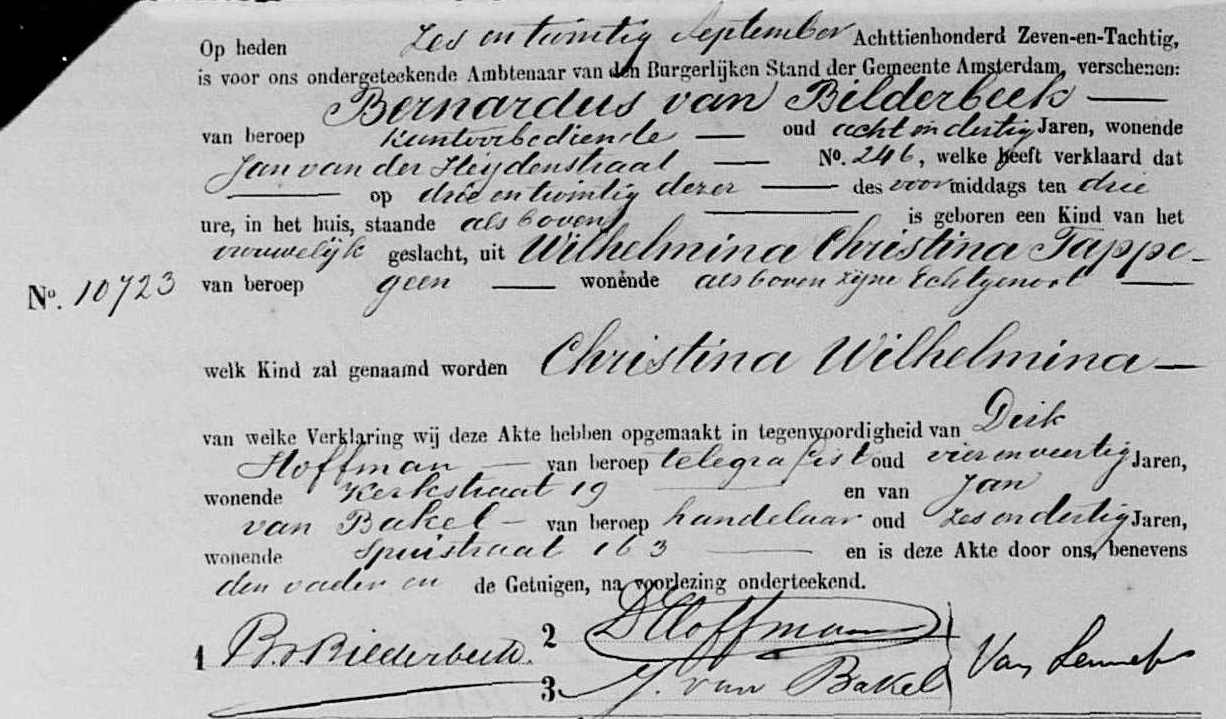 Op heden Zes en twintig September Achttienhonderd Zeven-en-Tachtig,
is voor ons ondergeteekende Ambtenaar van den Burgerlijken Stand der Gemeente Amsterdam, verschenen:
Bernardus van Bilderbeek
van beroep Kantoorbediende oud acht en dertig Jaren, wonende
Jan van der Heydenstraat No. 246, welke heeft verklaard dat
op drie en twintig dezer des voormiddags ten drie
ure, in het huis, staande als boven is geboren een Kind van het
vrouwelijk geslacht, uit Wilhelmina Christina Tappe
No. 10723 van beroep geen wonende als boven zijne Echtgenoot
welk Kind zal genaamd worden Christina Wilhelmina
van welke Verklaring wij deze Akte hebben opgemaakt in tegenwoordigheid van Dirk
Hoffman van beroep telegrafist oud vier en veertig Jaren,
wonende Kerkstraat 19 en van Jan
van Bakel van beroep handelaar oud Zes en dertig Jaren,
wonende Spuistraat 163 en is deze Akte door ons, benevens
den vader en de Getuigen, na voorlezing onderteekend.
1 B. v. Bilderbeek. 2 D Hoffman Van Lennep
3 J. van Bakel